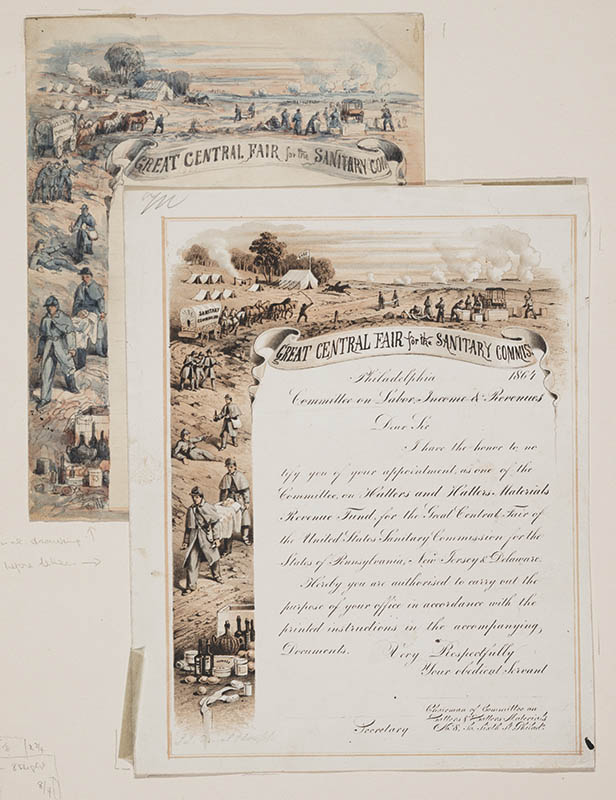 GREAT CENTRAL FAIR for the SANITARY COM
SANITARY
COMMISSION
GREAT CENTRAL FAIR for the SANITARY COMMIS.
Philadelphia 1864
Committee on Labor, Income & Revenues
Dear Sir
I have the honor to no
tify you of your appointment, as one of the
Committee, on Hatters and Hatters Materials
Revenue Fund, for the Great Central Fair of
the United States Sanitary Commission for the
States of Pennsylvania, New Jersey & Delaware.
Hereby you are authorised to carry out the
purpose of your office in accordance with the
printed instructions in the accompanying,
Documents. Very Respectfully
Your obedient Servant
Chairman of Committee on
Hatters & Hatters Materials
Secretary
drawing ↑
before